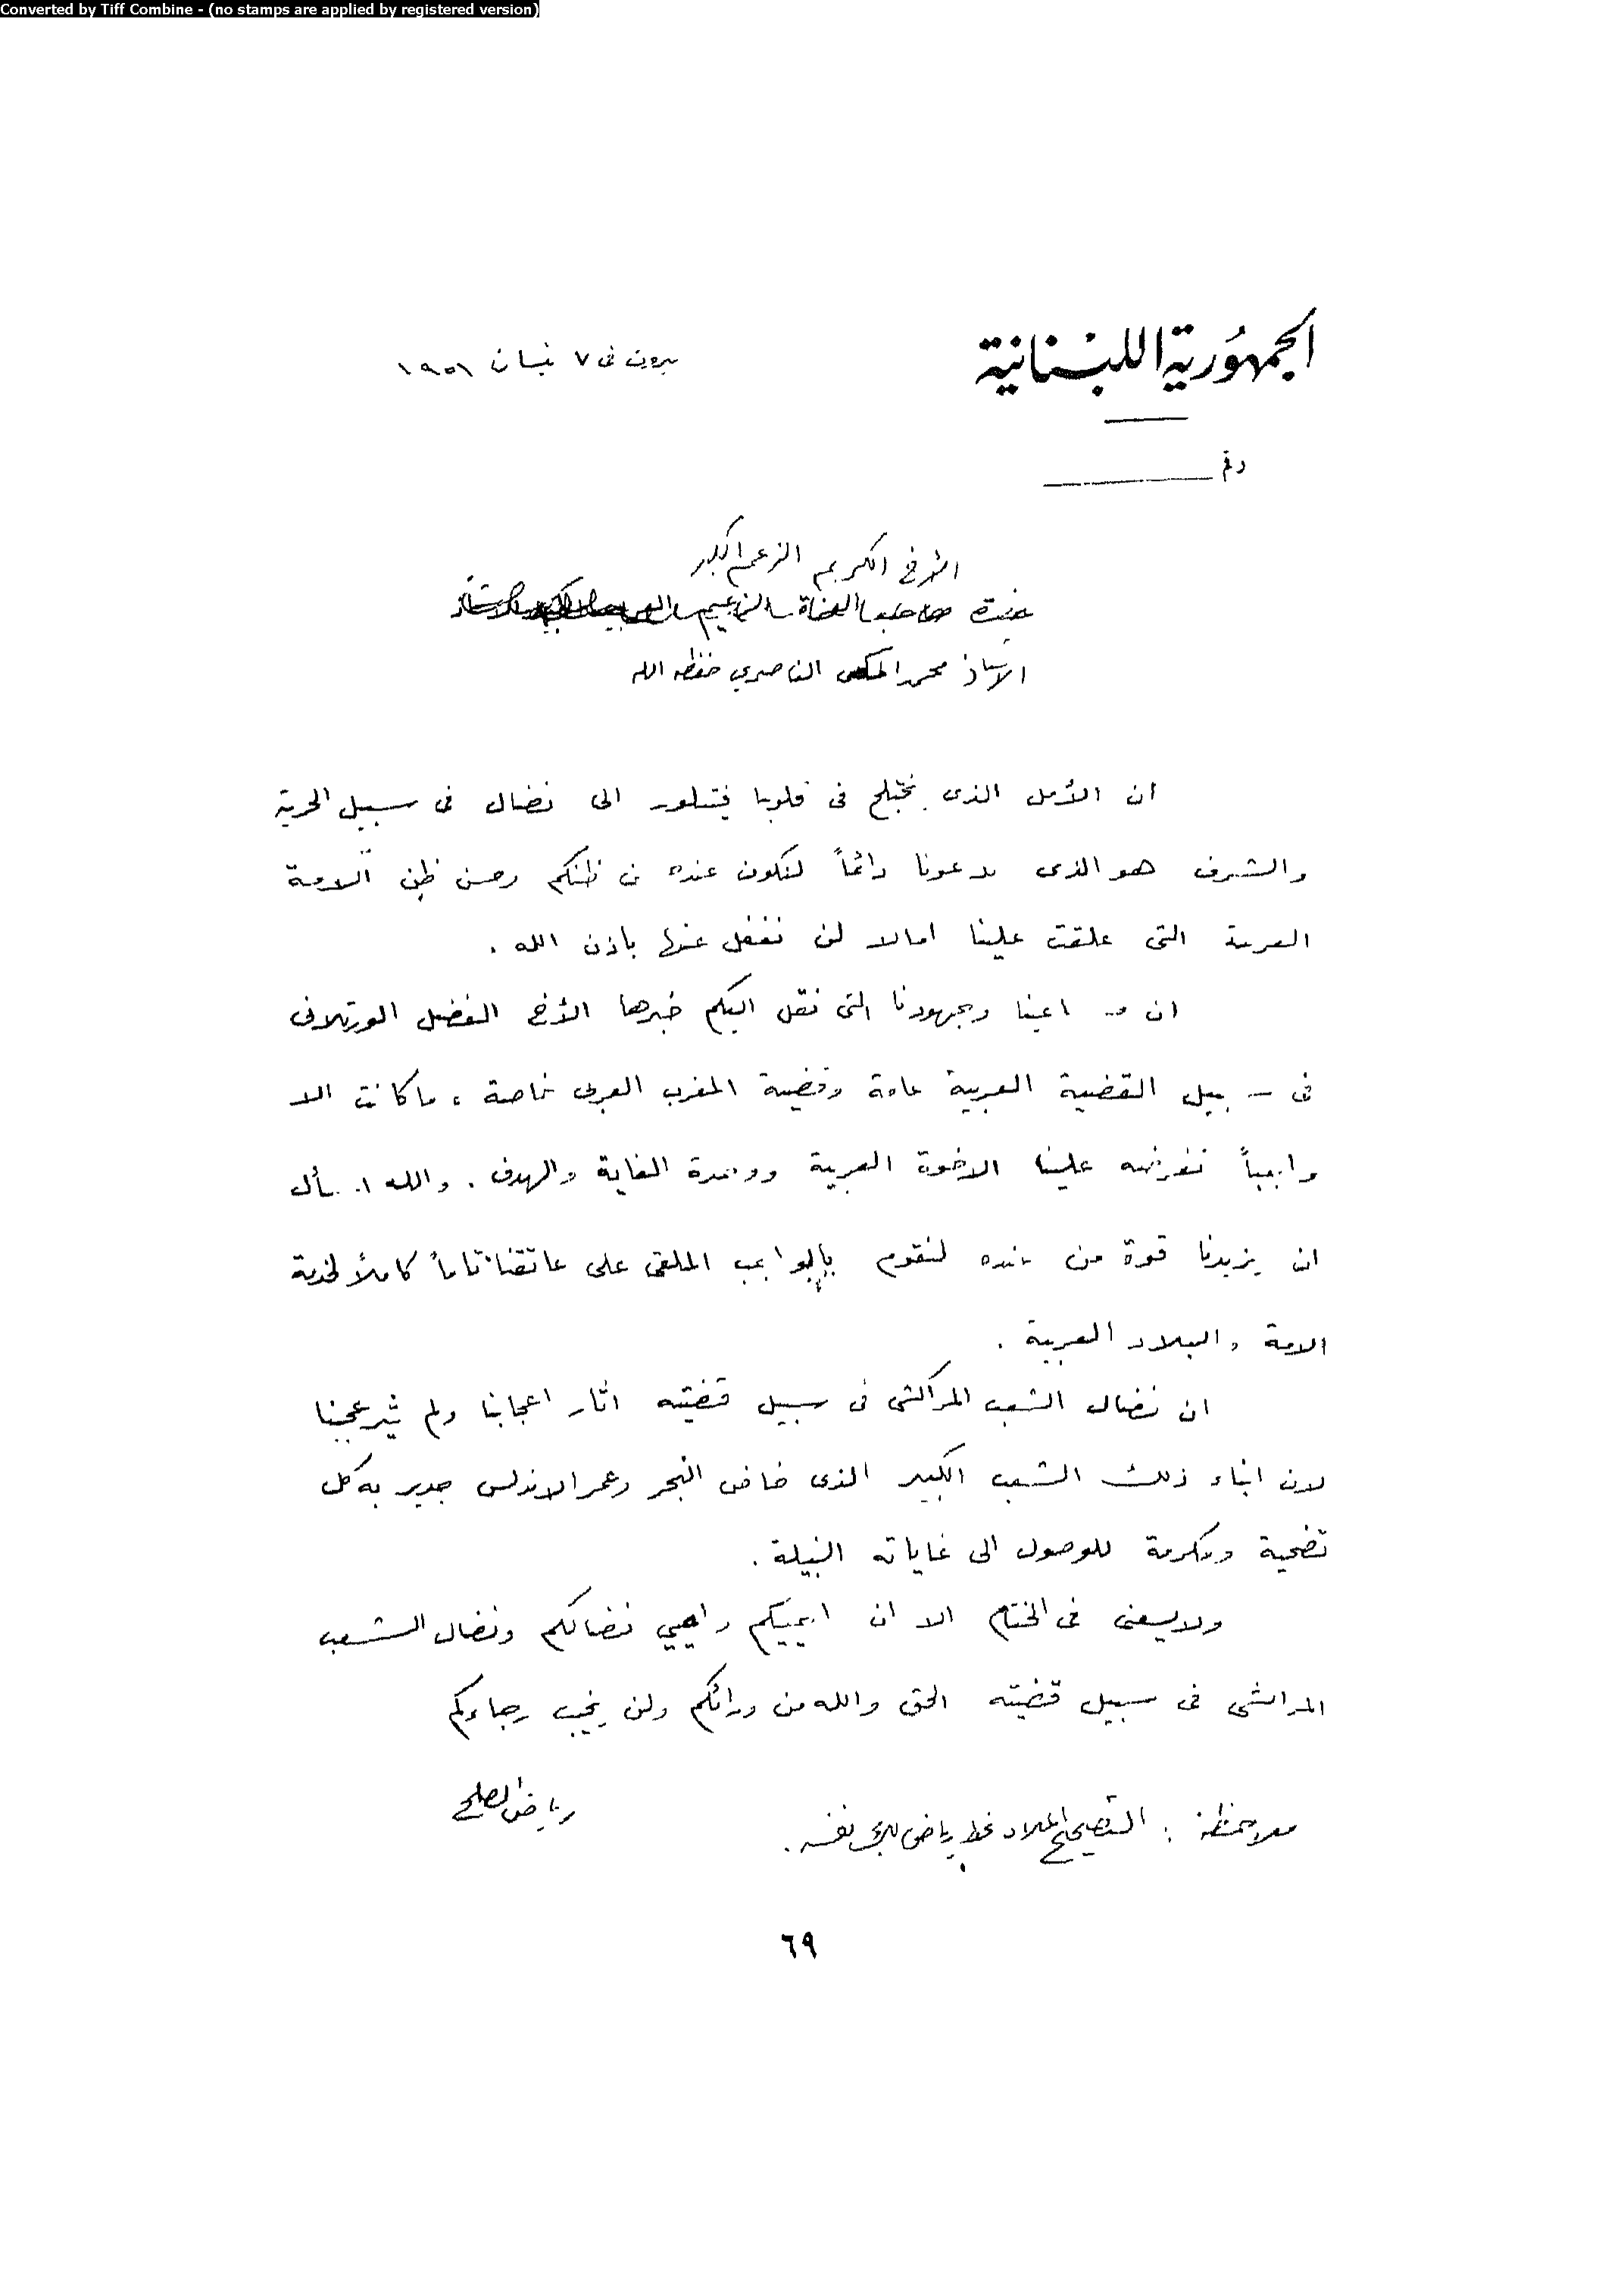 Converted by Tiff Combine - (no stamps are applied by registered version)
الجمهورية اللبنانية
بيروت في ٧ نيسان ١٩٥١
رقم
الأخ الكريم الزعيم الكبير
حضرة صاحب الزعيم
الاستاذ محمد المكي الناصري حفظه الله
ان الأمل الذي يختلج في قلوبنا فيتبلور الى نضال في سبيل الحرية
والشرف هو الذي يدعونا دائماً لنكون عند ظنكم وحسن ظن الامة
العربية التي علقت علينا امالا لن نغفل عنها باذن الله .
ان مساعينا وجهودنا التي نقل اليكم خبرها الأخ الفضيل الورتلاني
في سبيل القضية العربية عامة وقضية المغرب العربي خاصة ، ما كانت الا
واجباً تفرضه علينا الاخوة العربية ووحدة الغاية والهدف . والله اسأل
ان يزيدنا قوة من عنده لنقوم بالواجب الملقى على عاتقنا تاماً كاملاً لخدمة
الامة والبلاد العربية .
ان نضال الشعب المراكشي في سبيل قضيته اثار اعجابنا ولم يثر عجبنا
لان ابناء ذلك الشعب الكبير الذي خاض البحر وعمر الاندلس جدير به كل
تضحية ومكرمة للوصول الى غاياته النبيلة .
ولا يسعني في الختام الا ان احييكم واحيي نضالكم ونضال الشعب
المراكشي في سبيل قضيته الحق والله من ورائكم ولن يخيب رجاءكم
رياض الصلح
ملاحظة : التصحيح اعلاه بخط رياض بك نفسه .
٦٩